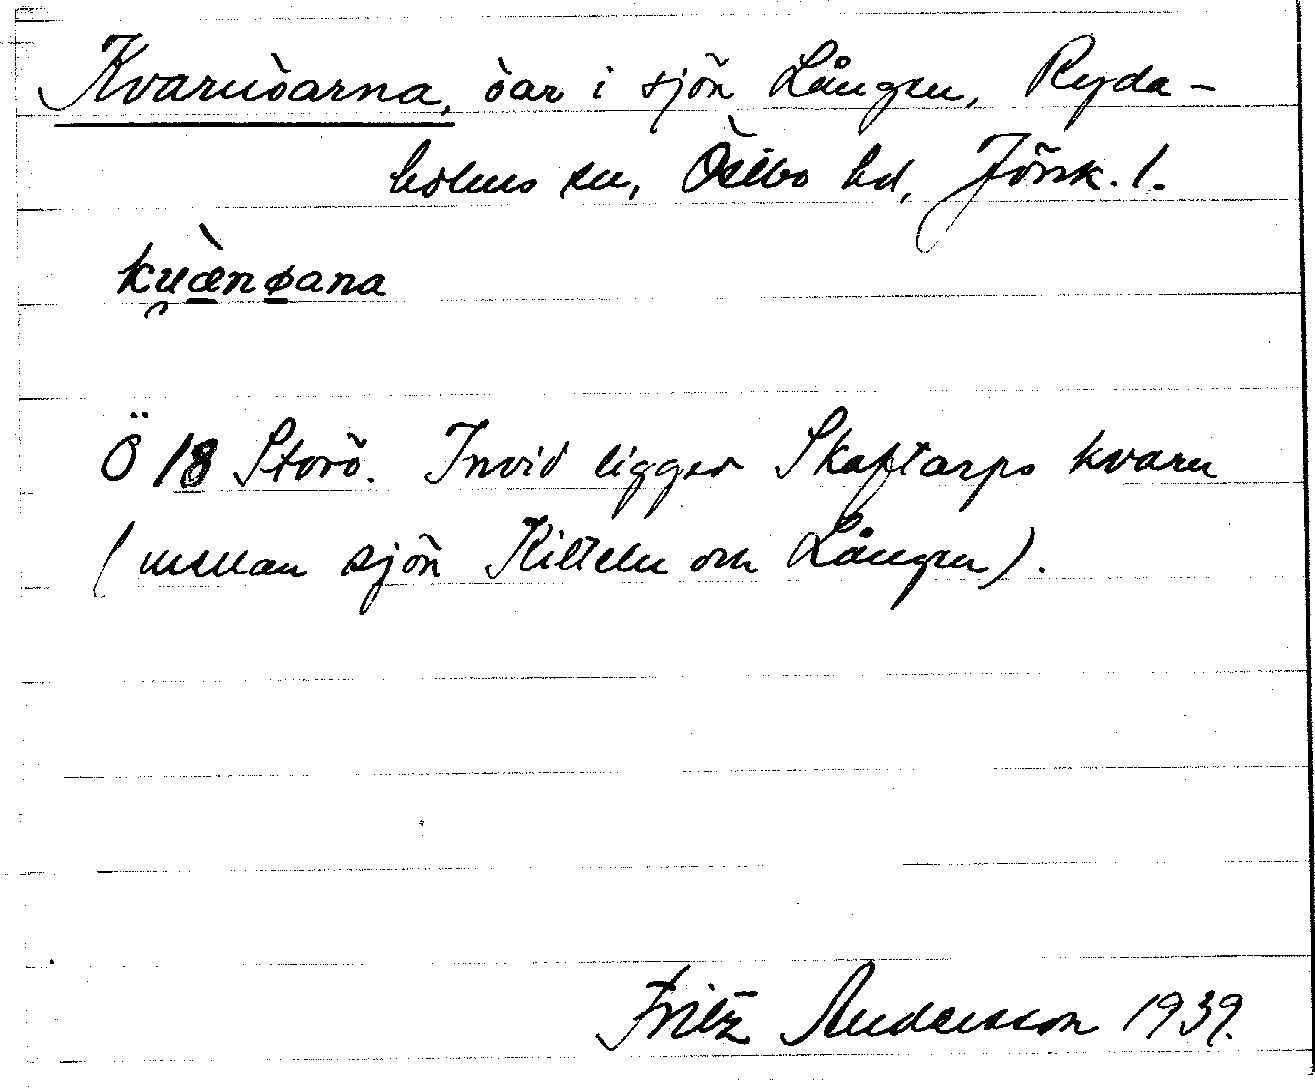 Kvarnöarna, öar i sjön Lången, Ryda-
holms sn, Östbo hd, Jönk. l.
ku̯ærnøana
Ö 18 Storö. Invid ligger Skaftarps kvarn
(mellan sjön Kitteln om Lången).
Fritz Andersson 1939.